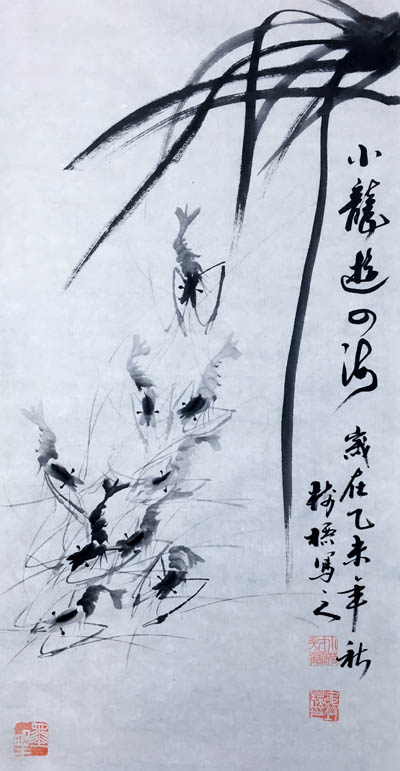 小龍遊四海
歲在乙未年秋
標寫之